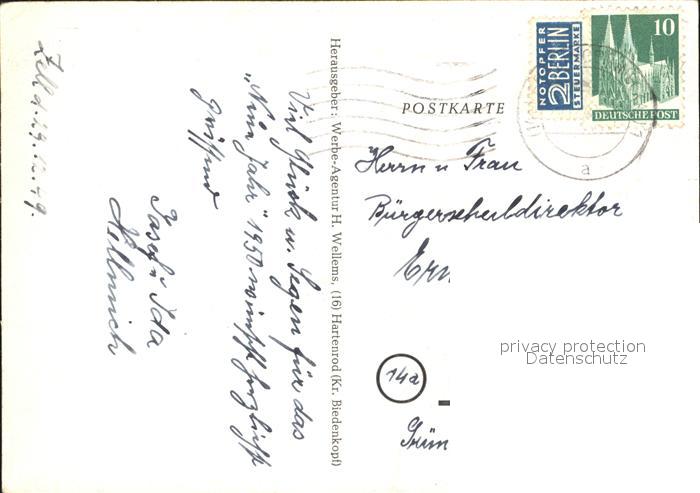 Zell d. 29.12.49.
Viel Glück u. Segen für das
"Neue Jahr" 1950 wünscht herzlichst
grüssend
Josef u. Ida
Herausgeber: Werbe-Agentur H. Wellems, (16) Hartenrod (Kr. Biedenkopf)
POSTKARTE
NOTOPFER
2 BERLIN
STEUERMARKE
10
DEUTSCHE POST
a
Herrn u. Frau
Bürgerschuldirektor
14a
privacy protection
Datenschutz